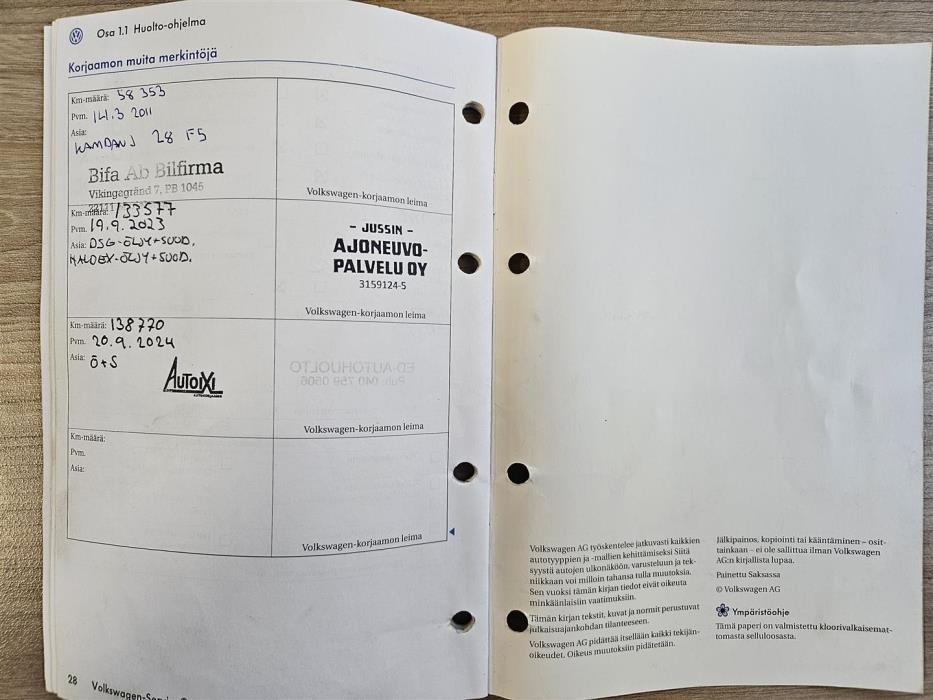 Osa 1.1 Huolto-ohjelma
Korjaamon muita merkintöjä
Km-määrä: 58 353
Pvm. 14.3 2011
Asia:
28 F5
Bifa Ab Bilfirma
Vikingagränd 7, PB 1045
Volkswagen-korjaamon leima
Km-määrä: 133577
Pvm. 19.9.2023
Asia: DSG-ÖLJY+SUOD.
HALDEX-ÖLJY+SUOD.
- JUSSIN -
AJONEUVO-
PALVELU OY
3159124-5
Volkswagen-korjaamon leima
Km-määrä: 138770
Pvm. 20.9.2024
Asia: Ö+S
AUTOIXI
ED-AUTOHUOLTO
Puh. 040 759 0506
Volkswagen-korjaamon leima
Km-määrä:
Pvm.
Asia:
Volkswagen-korjaamon leima
28
Volkswagen AG työskentelee jatkuvasti kaikkien
autotyyppien ja -mallien kehittämiseksi Siitä
syystä autojen ulkonäköön, varusteluun ja tek-
niikkaan voi milloin tahansa tulla muutoksia.
Sen vuoksi tämän kirjan tiedot eivät oikeuta
minkäänlaisiin vaatimuksiin.
Tämän kirjan tekstit, kuvat ja normit perustuvat
julkaisuajankohdan tilanteeseen.
Volkswagen AG pidättää itsellään kaikki tekijän-
oikeudet. Oikeus muutoksiin pidätetään.
Jälkipainos, kopiointi tai kääntäminen – osit-
tainkaan – ei ole sallittua ilman Volkswagen
AG:n kirjallista lupaa.
Painettu Saksassa
© Volkswagen AG
Ympäristöohje
Tämä paperi on valmistettu kloorivalkaisemat-
tomasta selluloosasta.